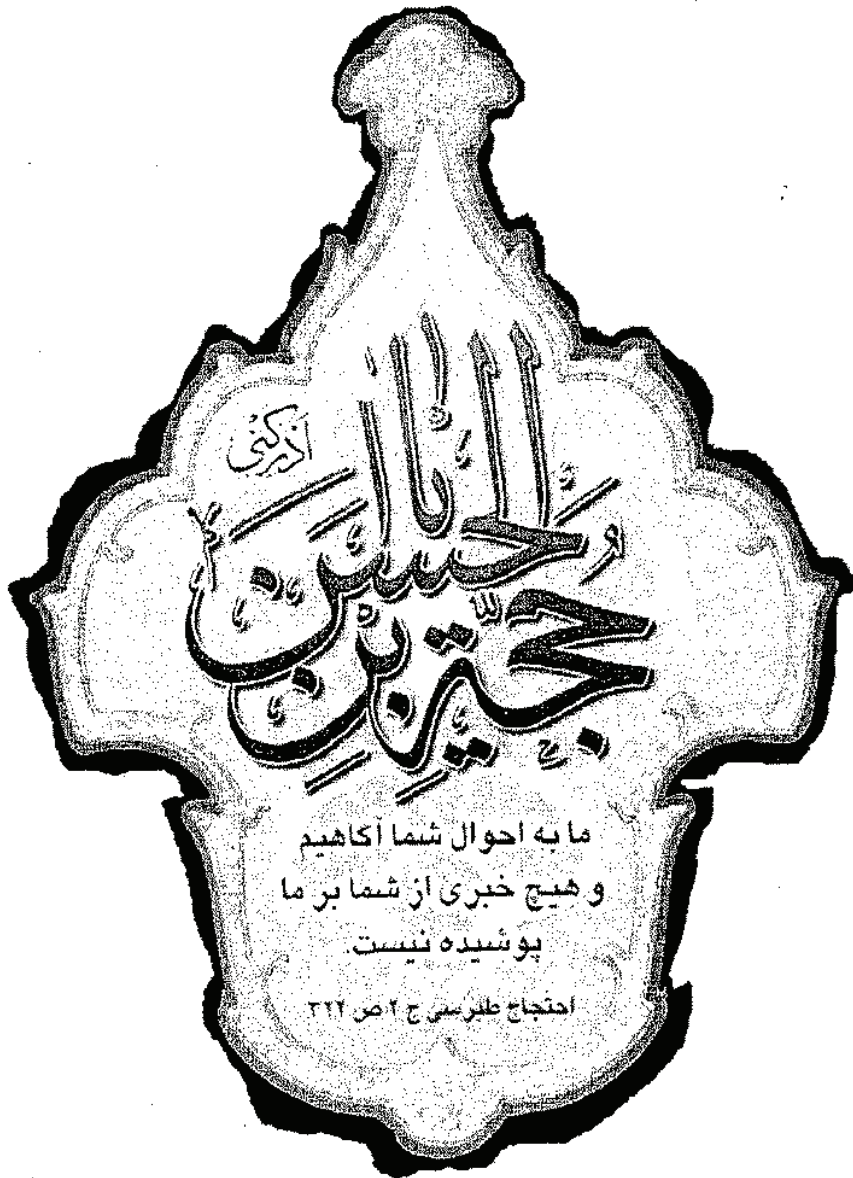 یا حجة بن الحسن
أدركني
ما به احوال شما آگاهیم
و هیچ خبری از شما بر ما
پوشیده نیست.
احتجاج طبرسی ج ۲ ص ۳۲۲